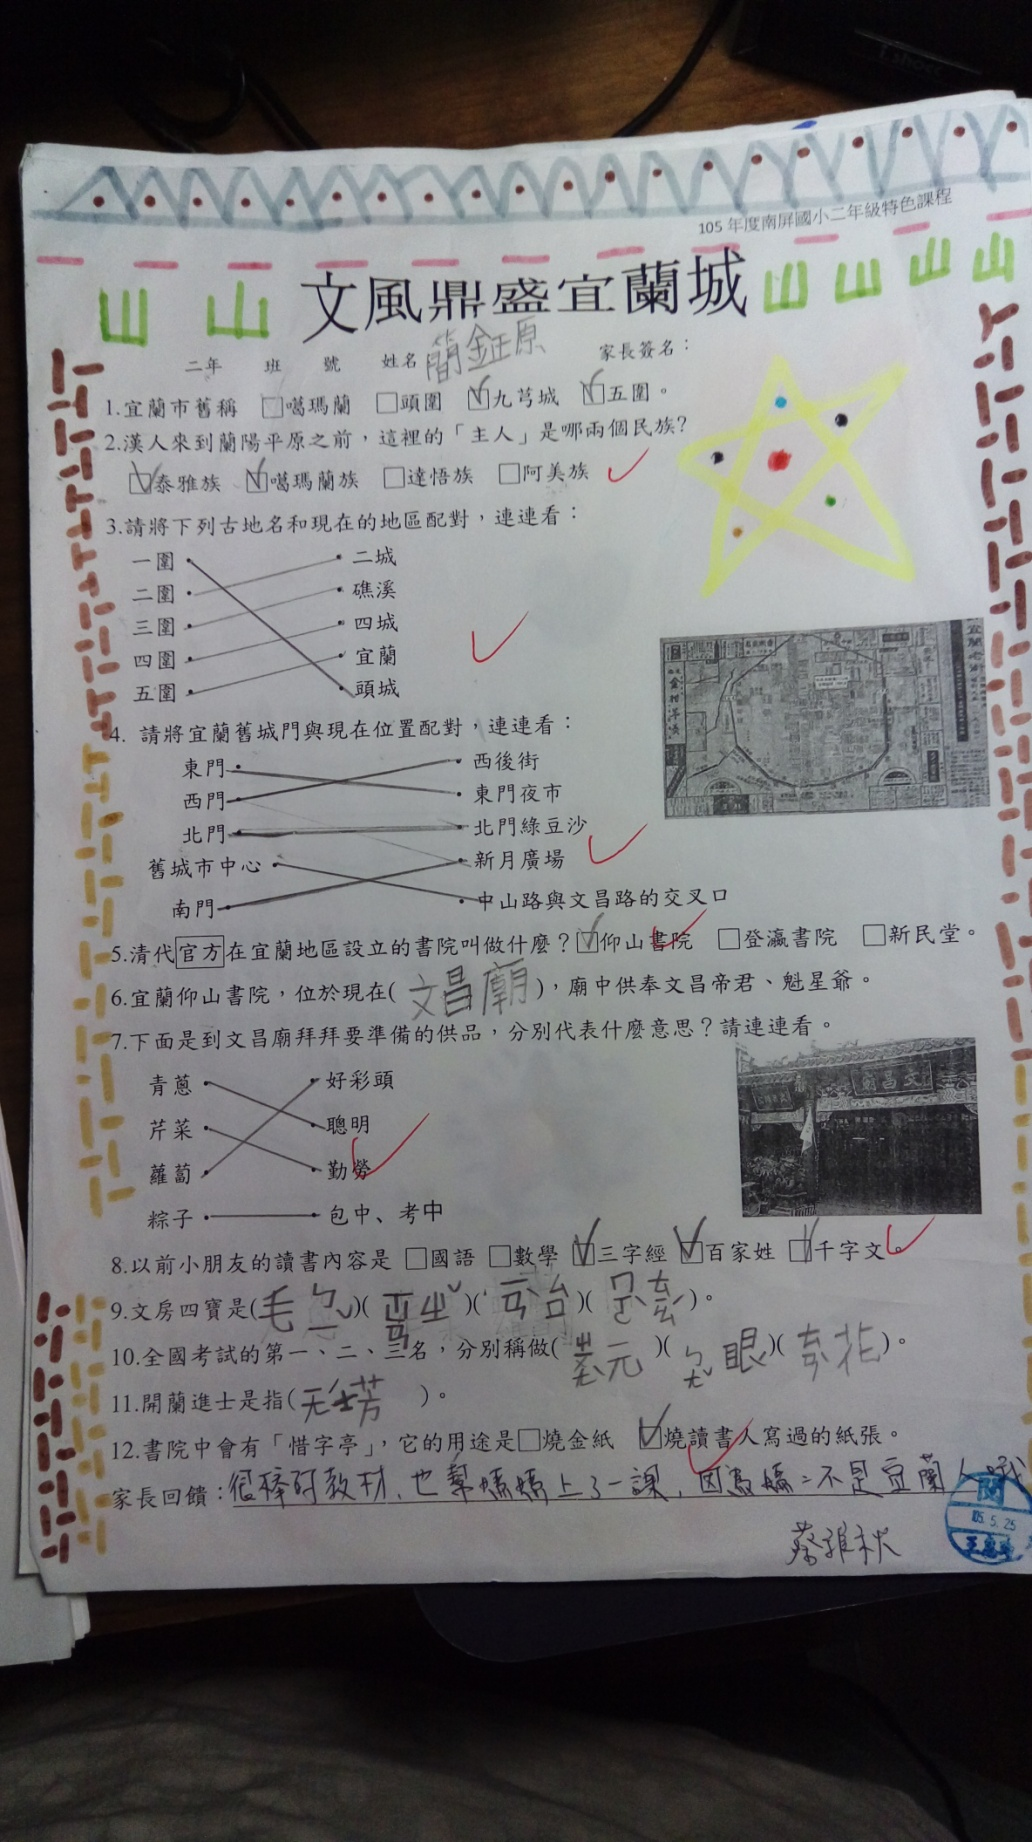 105 年度南屏國小二年級特色課程
文風鼎盛宜蘭城
二年 班 號 姓名 簡鉦原 家長簽名：
1.宜蘭市舊稱 □噶瑪蘭 □頭圍 ☑九芎城 ☑五圍。
2.漢人來到蘭陽平原之前，這裡的「主人」是哪兩個民族?
☑泰雅族 ☑噶瑪蘭族 □達悟族 □阿美族
3.請將下列古地名和現在的地區配對，連連看：
一圍 二城
二圍 礁溪
三圍 四城
四圍 宜蘭
五圍 頭城
4. 請將宜蘭舊城門與現在位置配對，連連看：
東門 西後街
西門 東門夜市
北門 北門綠豆沙
舊城市中心 新月廣場
南門 中山路與文昌路的交叉口
5.清代官方在宜蘭地區設立的書院叫做什麼？☑仰山書院 □登瀛書院 □新民堂。
6.宜蘭仰山書院，位於現在(文昌廟)，廟中供奉文昌帝君、魁星爺。
7.下面是到文昌廟拜拜要準備的供品，分別代表什麼意思？請連連看。
青蔥 好彩頭
芹菜 聰明
蘿蔔 勤勞
粽子 包中、考中
8.以前小朋友的讀書內容是 □國語 □數學 ☑三字經 ☑百家姓 ☑千字文
9.文房四寶是(毛ㄅㄧˇ)( )( )( )。
10.全國考試的第一、二、三名，分別稱做( 元)( 眼)( 花)。
11.開蘭進士是指( 芳)。
12.書院中會有「惜字亭」，它的用途是□燒金紙 ☑燒讀書人寫過的紙張。
家長回饋：很棒的教材、也幫媽媽上了一課，因為媽媽不是宜蘭人
蔡雅秋
105.5.25